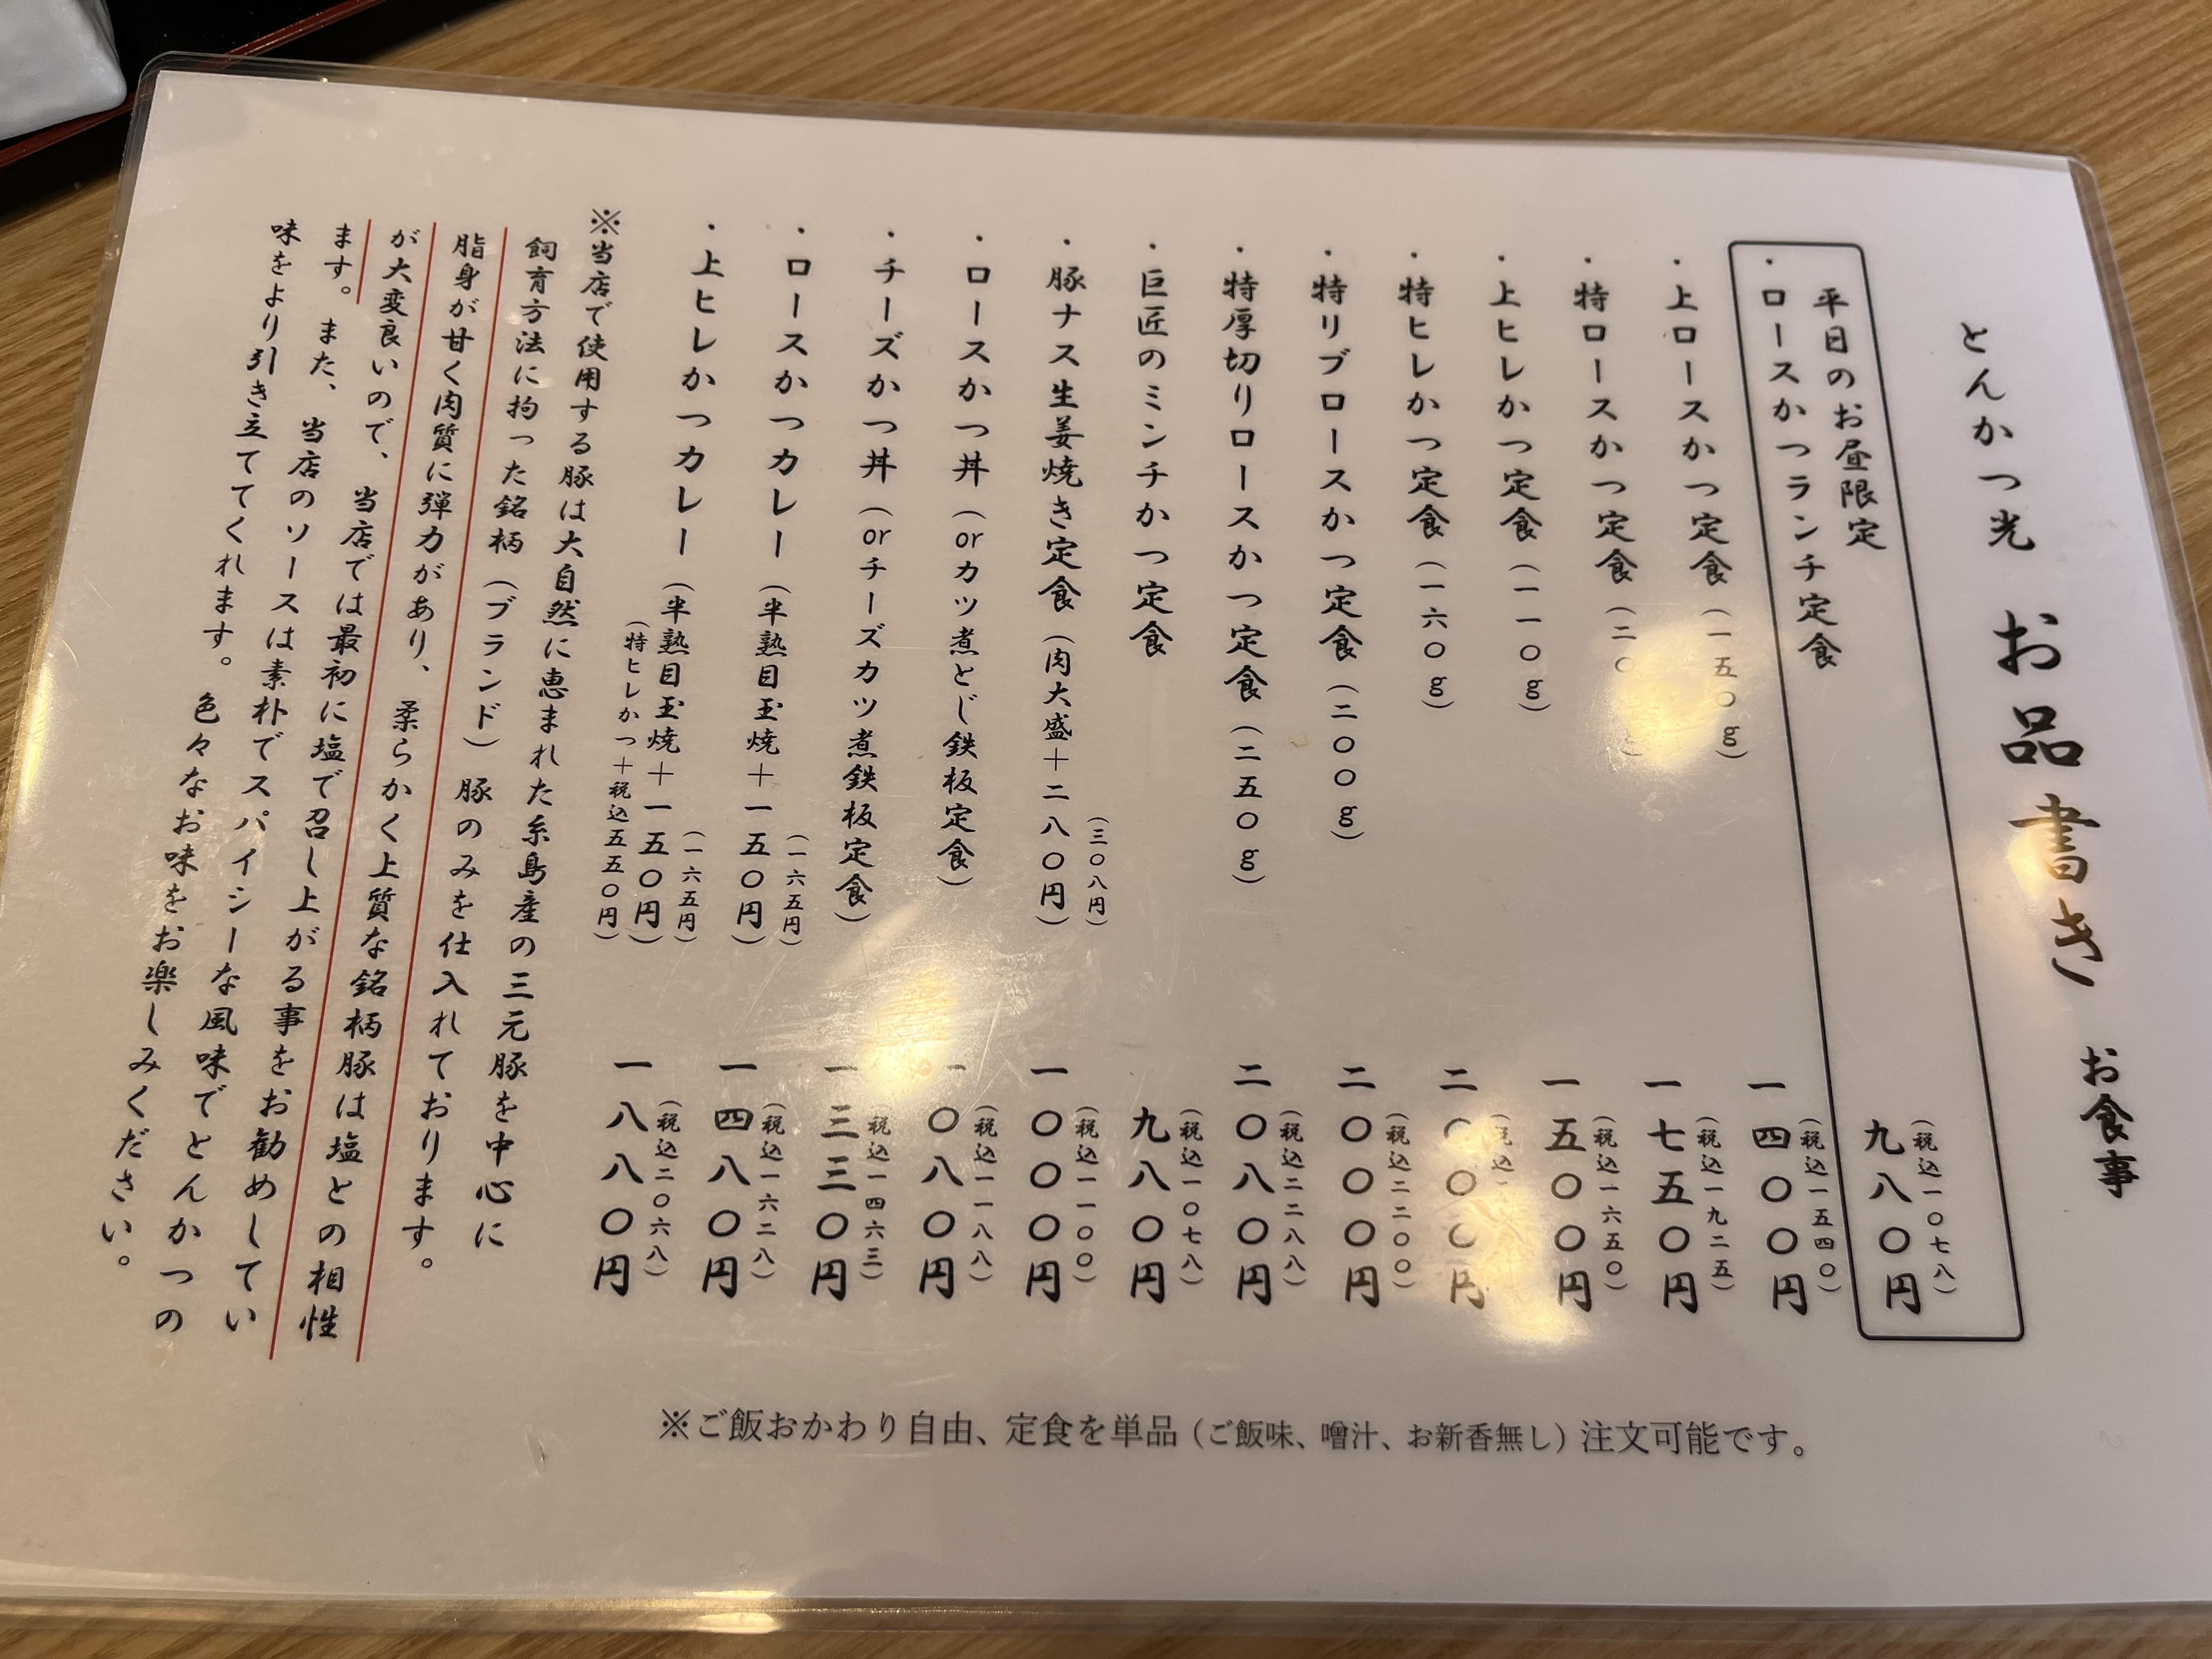 とんかつ光 お品書き お食事
平日のお昼限定
・ロースかつランチ定食 九八〇円
(税込一〇七八)
・上ロースかつ定食(一五〇g) 一四〇〇円
(税込一五四〇)
・特ロースかつ定食 一七五〇円
(税込一九二五)
・上ヒレかつ定食(一一〇g) 一五〇〇円
(税込一六五〇)
・特ヒレかつ定食(一六〇g)
・特リブロースかつ定食(二〇〇g) 二〇〇〇円
(税込二二〇〇)
・特厚切りロースかつ定食(二五〇g) 二〇八〇円
(税込二二八八)
・巨匠のミンチかつ定食 九八〇円
(税込一〇七八)
・豚ナス生姜焼き定食(肉大盛+二八〇円) 一〇〇〇円
(三〇八円)
(税込一一〇〇)
・ロースかつ丼(orカツ煮とじ鉄板定食) 一〇八〇円
(税込一一八八)
・チーズかつ丼(orチーズカツ煮鉄板定食) 一三三〇円
(税込一四六三)
・ロースかつカレー(半熟目玉焼+一五〇円) 一四八〇円
(一六五円)
(税込一六二八)
・上ヒレかつカレー(半熟目玉焼+一五〇円) 一八八〇円
(一六五円)
(税込二〇六八)
(特ヒレかつ+税込五五〇円)
※当店で使用する豚は大自然に恵まれた糸島産の三元豚を中心に
飼育方法に拘った銘柄(ブランド)豚のみを仕入れております。
脂身が甘く肉質に弾力があり、柔らかく上質な銘柄豚は塩との相性
が大変良いので、当店では最初に塩で召し上がる事をお勧めしてい
ます。また、当店のソースは素朴でスパイシーな風味でとんかつの
味をより引き立ててくれます。色々なお味をお楽しみください。
※ご飯おかわり自由、定食を単品(ご飯味、噌汁、お新香無し)注文可能です。